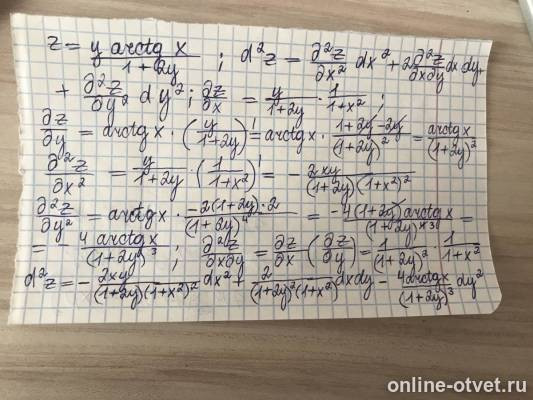 z = y arctg x / 1 + 2y ; d²z = ∂²z/∂x² dx² + 2 ∂²z/∂x∂y dx dy +
+ ∂²z/∂y² dy² ; ∂z/∂x = y/1+2y · 1/1+x² ;
∂z/∂y = arctg x · (y/1+2y)' = arctg x · 1+2y-2y/(1+2y)² = arctg x/(1+2y)²
∂²z/∂x² = y/1+2y · (1/1+x²)' = - 2xy/(1+2y)(1+x²)²
∂²z/∂y² = arctg x · -2(1+2y)·2/(1+2y)⁴ = -4(1+2y) arctg x/(1+2y)⁴ ³ =
= 4 arctg x/(1+2y)³ ; ∂²z/∂x∂y = ∂z/∂x (∂z/∂y) = 1/(1+2y)² · 1/1+x²
d²z = - 2xy/(1+2y)(1+x²)² dx² + 2/(1+2y)²(1+x²) dx dy - 4arctg x/(1+2y)³ dy²
online-otvet.ru